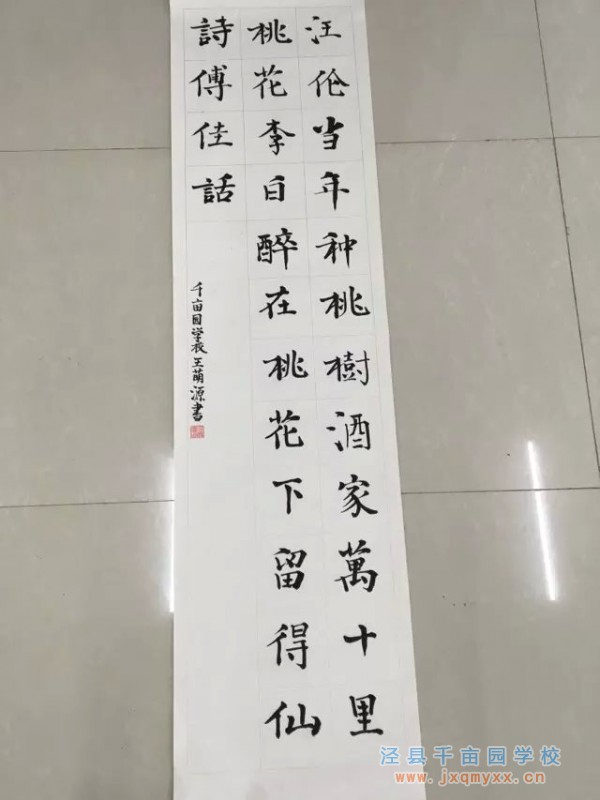 汪伦当年种桃樹酒家萬十里
桃花李白醉在桃花下留得仙
詩傅佳話
千亩园学校王萌源書
泾县千亩园学校
www.jxqmyxx.cn